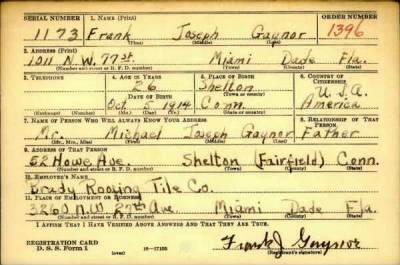 SERIAL NUMBER 1. NAME (Print) ORDER NUMBER
1173 Frank Joseph Gaynor 1396
(First) (Middle) (Last)
2. ADDRESS (Print)
1011 N.W. 77 st. Miami Dade Fla.
(Number and street or R. F. D. number) (Town) (County) (State)
3. TELEPHONE 4. AGE IN YEARS 5. PLACE OF BIRTH 6. COUNTRY OF CITIZENSHIP
26 Shelton U.S.A.
DATE OF BIRTH (Town or county)
Oct 5 1914 Conn. America
(Exchange) (Number) (Mo.) (Day) (Yr.) (State or country)
7. NAME OF PERSON WHO WILL ALWAYS KNOW YOUR ADDRESS 8. RELATIONSHIP OF THAT PERSON
Mr. Michael Joseph Gaynor Father
(Mr., Mrs., Miss) (First) (Middle) (Last)
9. ADDRESS OF THAT PERSON
52 Howe Ave. Shelton (Fairfield) Conn.
(Number and street or R. F. D. number) (Town) (County) (State)
10. EMPLOYER'S NAME
Brady Roofing Tile Co.
11. PLACE OF EMPLOYMENT OR BUSINESS
3260 N.W. 27th Ave. Miami Dade Fla.
(Number and street or R. F. D. number) (Town) (County) (State)
I AFFIRM THAT I HAVE VERIFIED ABOVE ANSWERS AND THAT THEY ARE TRUE.
REGISTRATION CARD
D. S. S. Form 1 16—17105 Frank J Gaynor
(Registrant's signature)